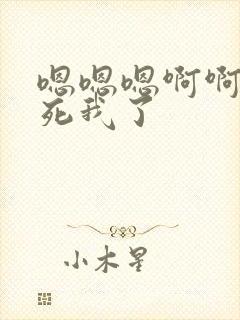 嗯嗯嗯啊啊
死我了
小木星